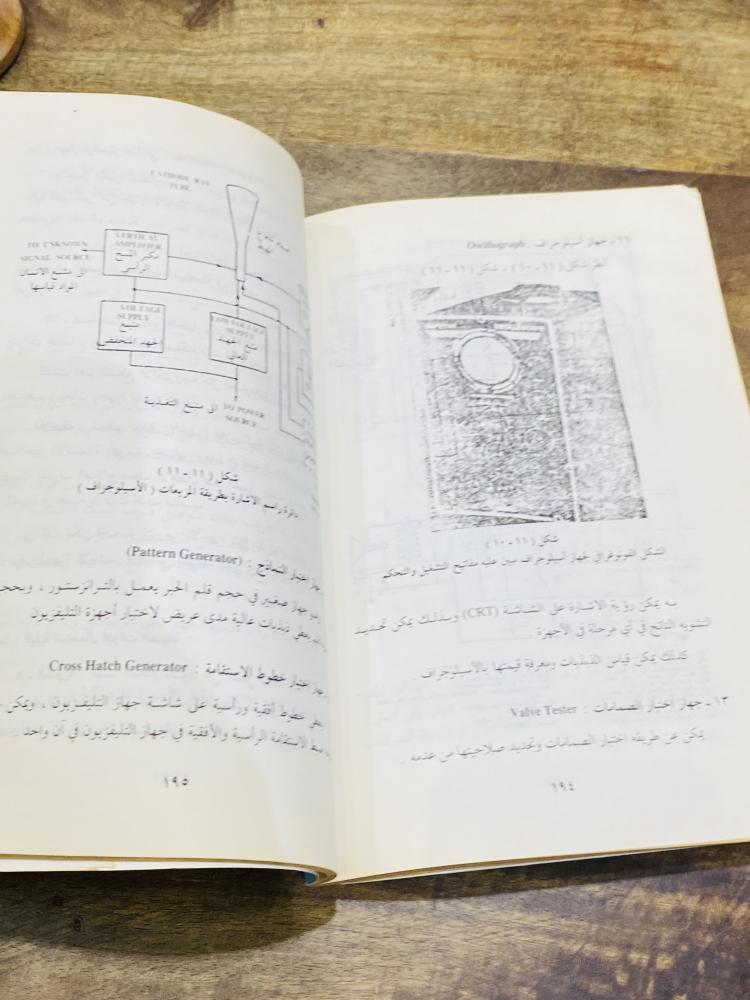 ١١ - جهاز أسيلوجراف : Oscillograph
أنظر شكل (١١-١٠) ، شكل (١١-١١)
شكل (١١-١٠)
الشكل الفوتوغرافي لجهاز أسيلوجراف مبين عليه مفاتيح التشغيل والتحكم
به يمكن رؤية الاشارة على الشاشة (CRT) وبذلك يمكن تحديد
التشويه الناتج في أي مرحلة في الأجهزة .
كذلك يمكن قياس الذبذبات ومعرفة قيمتها بالأسيلوجراف .
١٣ - جهاز اختبار الصمامات : Valve Tester
يمكن عن طريقه اختبار الصمامات وتحديد صلاحيتها من عدمه .
١٩٤
CATHODE RAY
TUBE
VERTICAL
AMPLIFIER
مكبر
الرأسي
TO UNKNOWN
SIGNAL SOURCE
المراد قياسها
VOLTAGE
SUPPLY
منبع
الجهد المنخفض
LOW VOLTAGE
SUPPLY
منبع الجهد
العالي
TO POWER
SOURCE
الى منبع التغذية
شكل (١١-١١)
دائرة راسم الاشارة بطريقة المربعات (الأسيلوجراف)
جهاز اختبار النماذج : (Pattern Generator)
جهاز صغير في حجم قلم الحبر يعمل بالترانزستور ، وبحجم
يعطي ذبذبات عالية مدى عريض لاختبار أجهزة التليفزيون
جهاز اختبار خطوط الاستقامة : Cross Hatch Generator
يعطي خطوط أفقية ورأسية على شاشة جهاز التليفزيون ، ويمكن
ضبط الاستقامة الرأسية والأفقية في جهاز التليفزيون في آن واحد
١٩٥